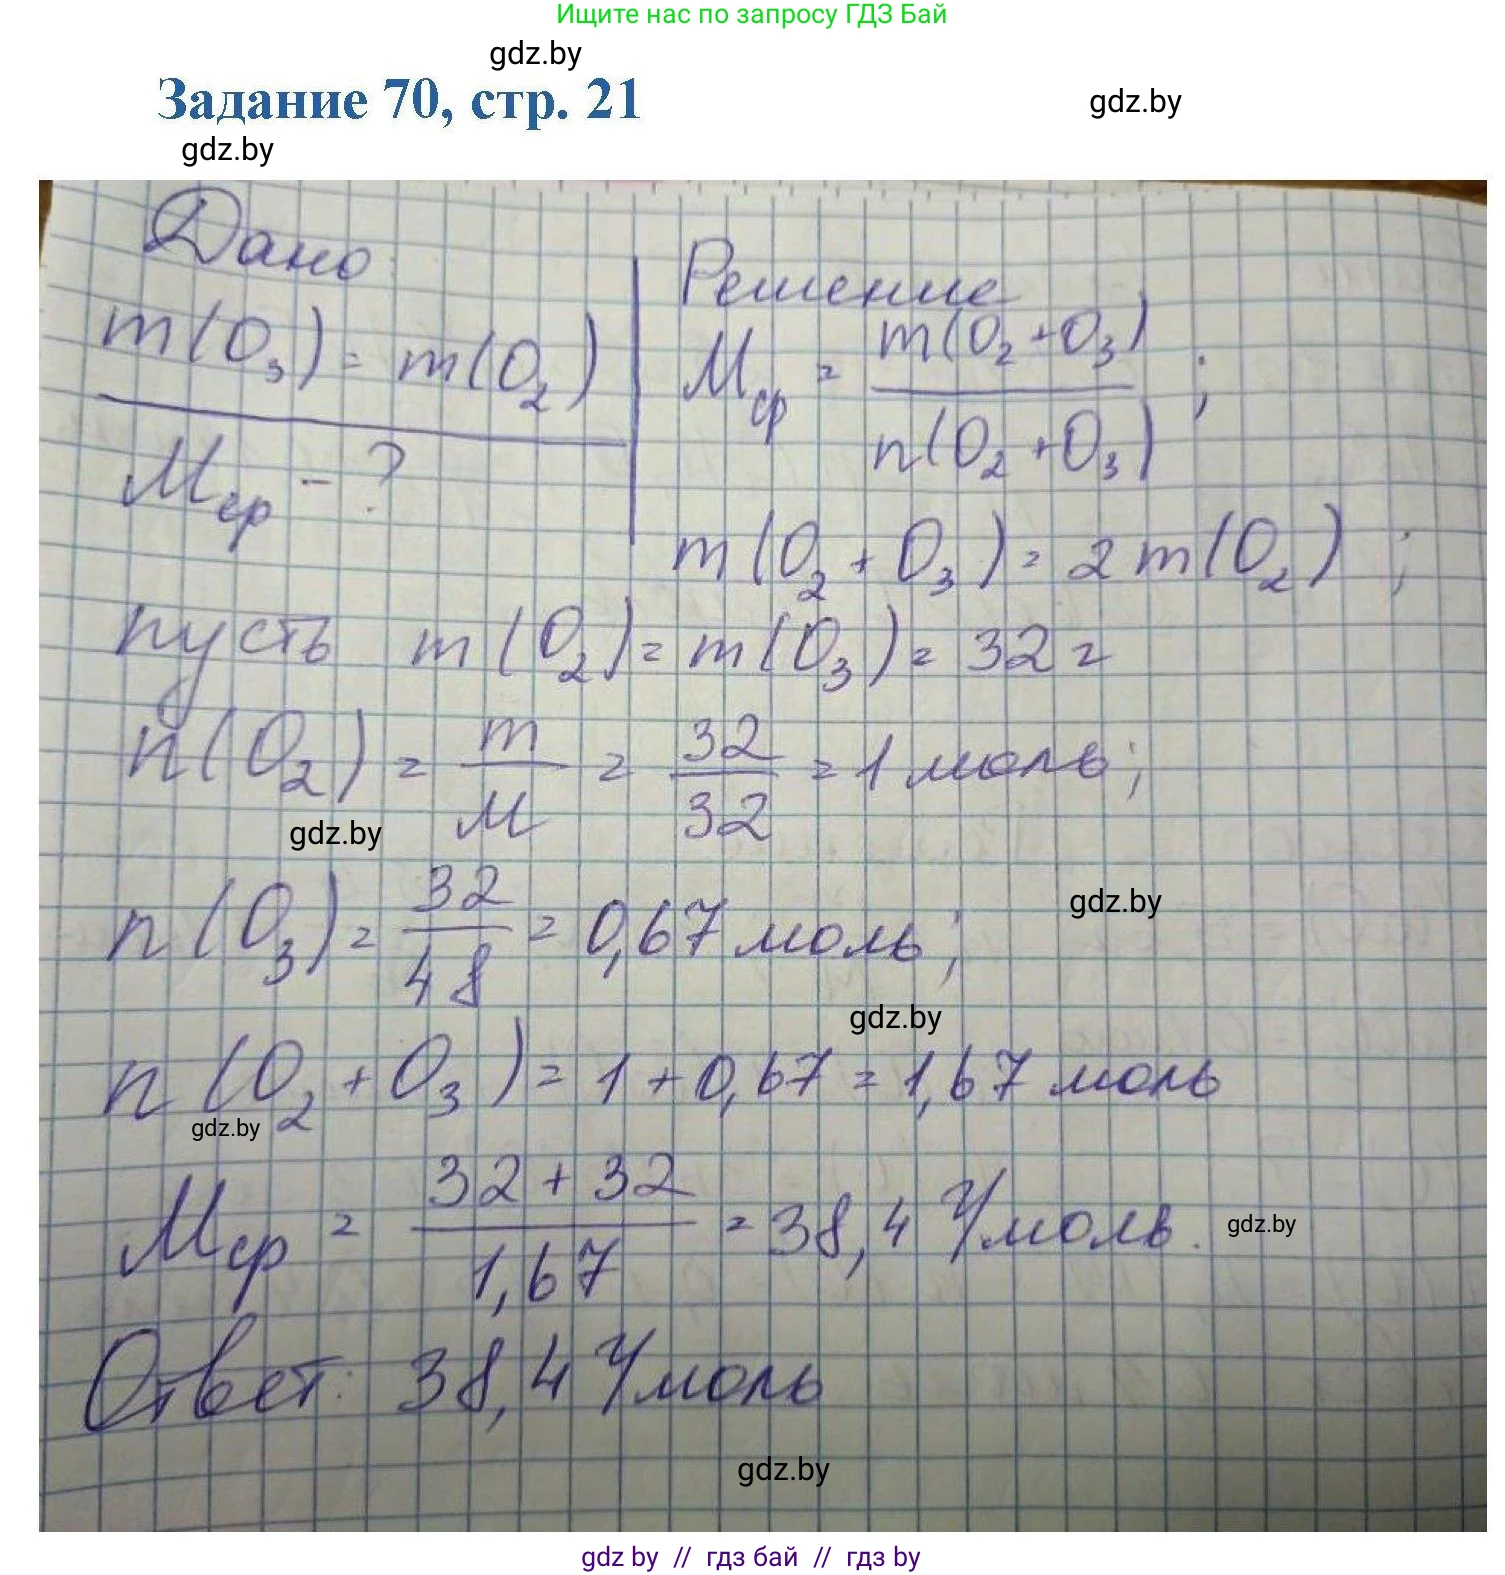 Ищите нас по запросу ГДЗ Бай
gdz.by
Задание 70, стр. 21
gdz.by
gdz.by
Дано:
m(O₃) = m(O₂)
Mср - ?
Решение
Mср = m(O₂+O₃) / n(O₂+O₃) ;
m(O₂ + O₃) = 2m(O₂) ;
пусть m(O₂) = m(O₃) = 32 г
n(O₂) = m/M = 32/32 = 1 моль;
gdz.by
n(O₃) = 32/48 = 0,67 моль;
gdz.by
gdz.by
n(O₂ + O₃) = 1 + 0,67 = 1,67 моль
gdz.by
Mср = (32 + 32) / 1,67 = 38,4 г/моль.
gdz.by
Ответ: 38,4 г/моль
gdz.by
gdz by // гдз бай // гдз by